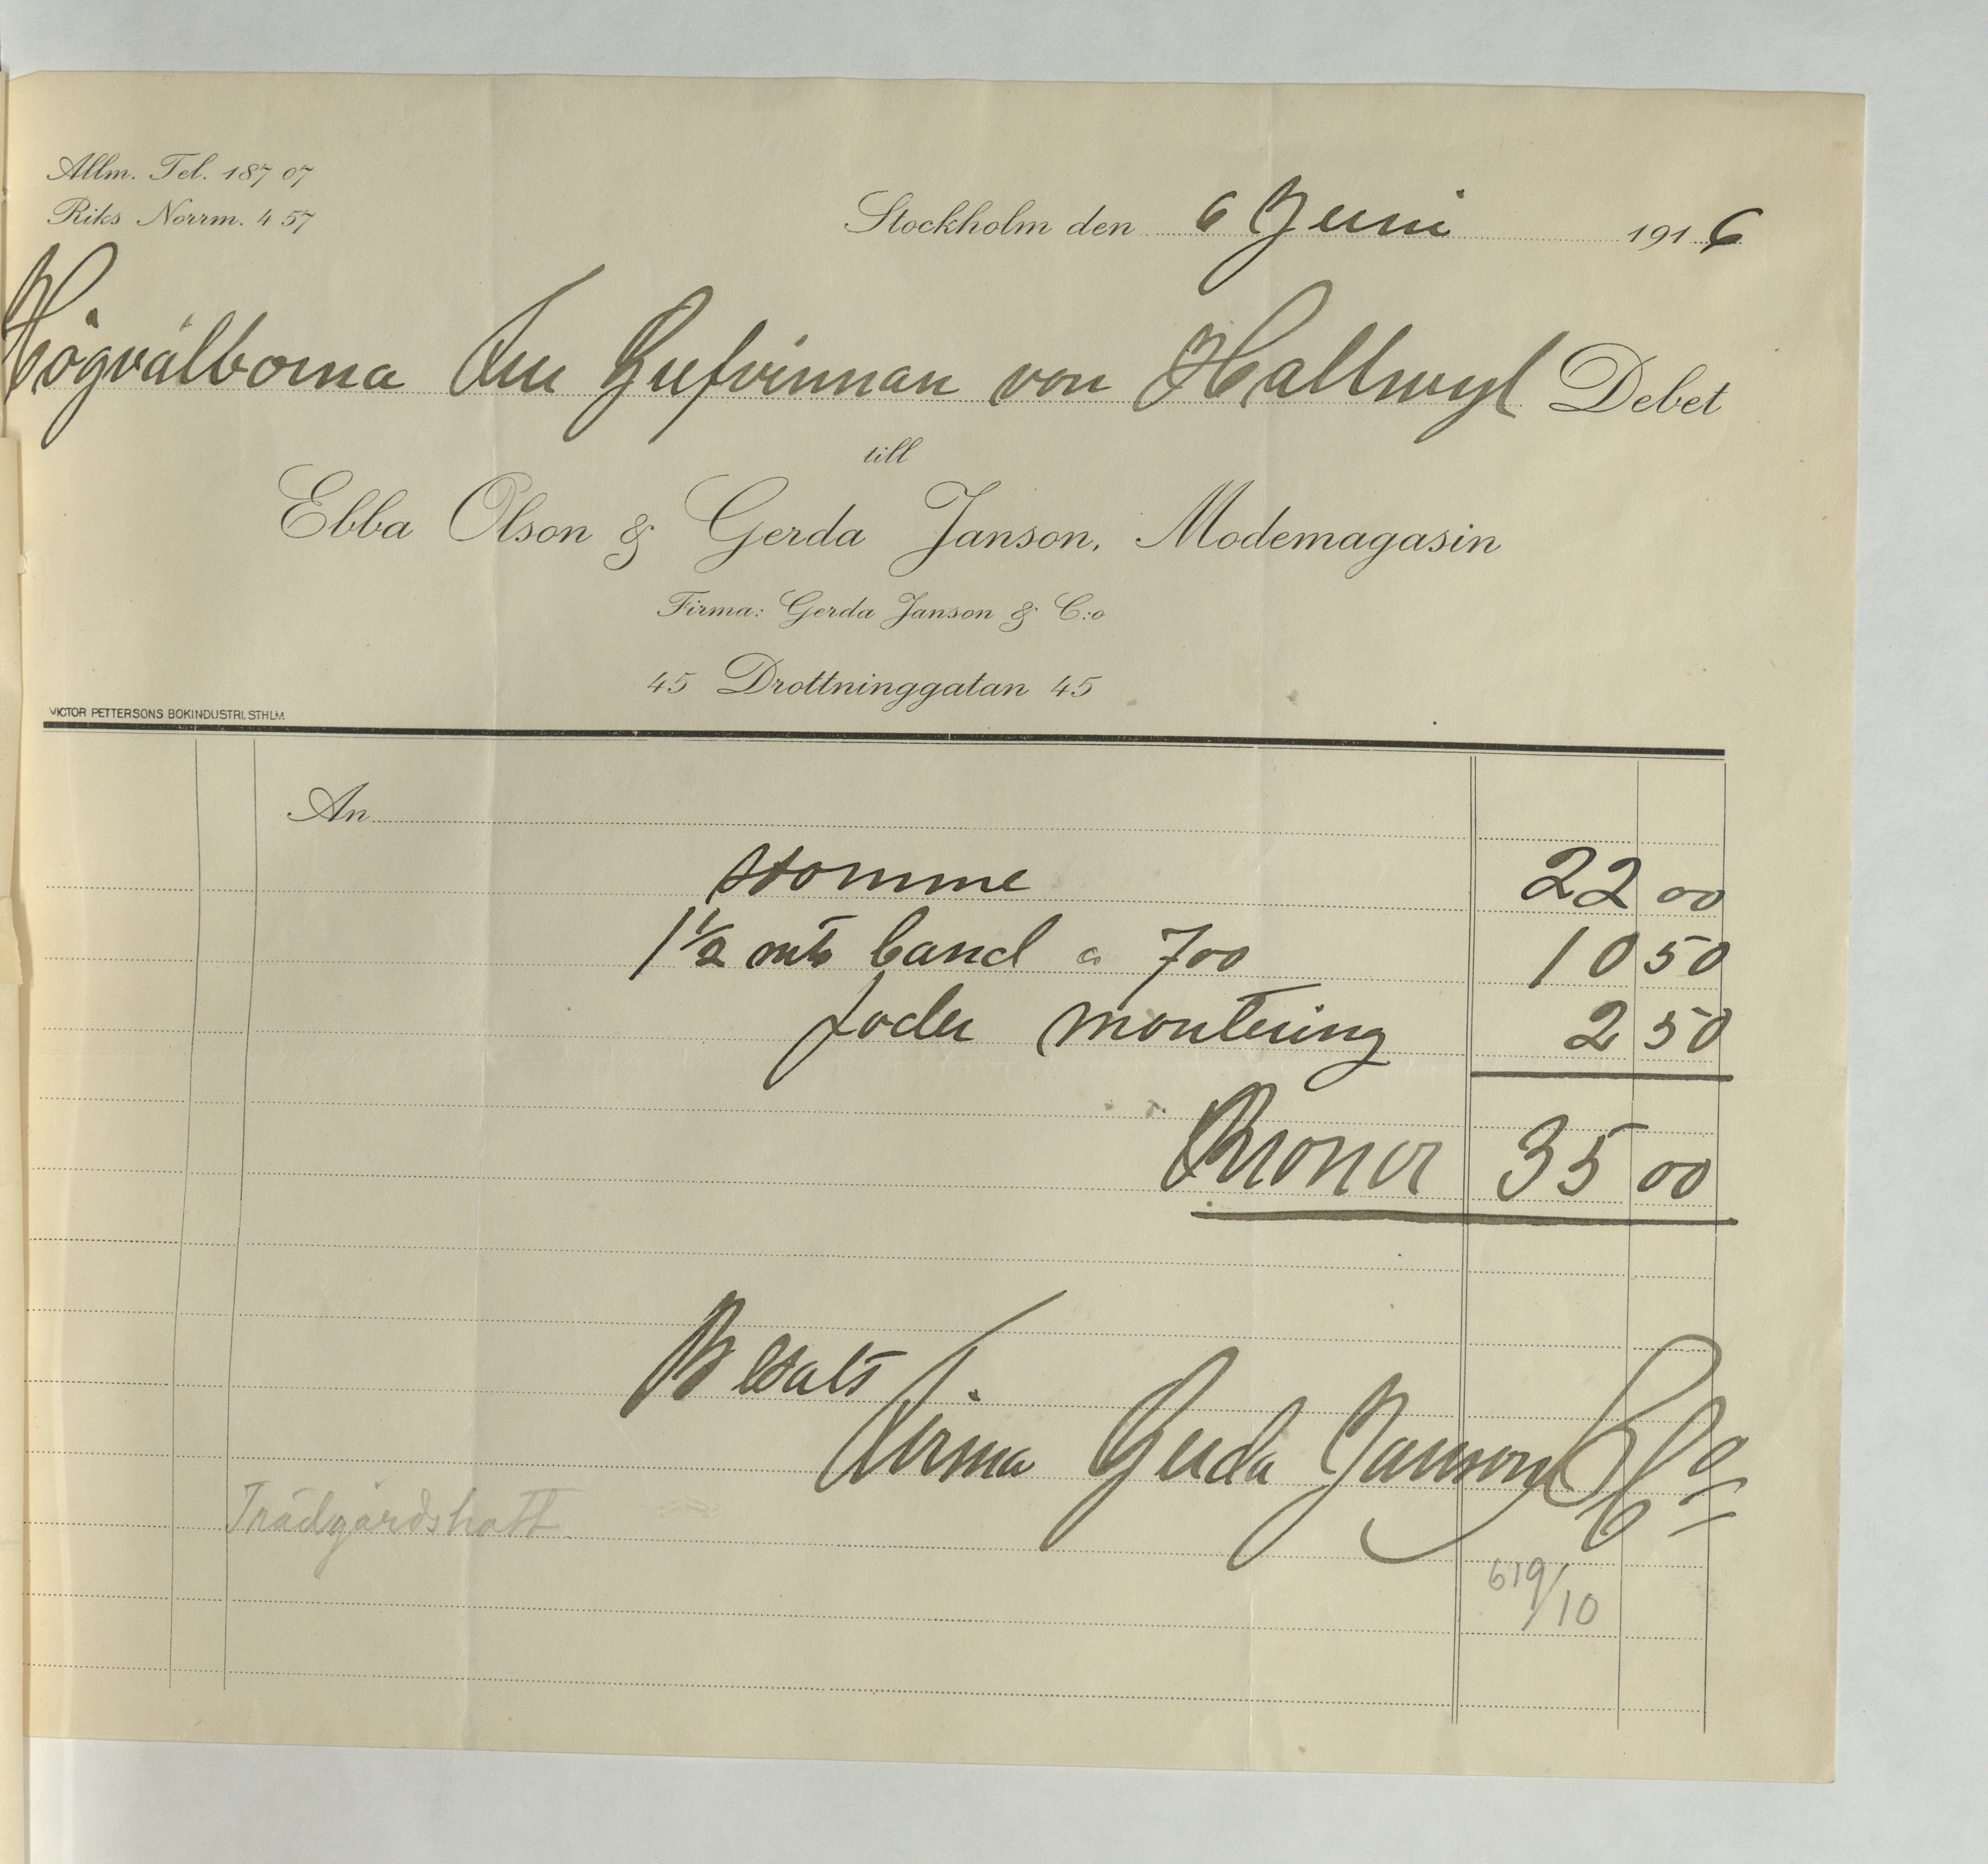 Allm. Tel. 187 07
Riks Norrm. 4 57
Stockholm den 6 Juni 1916
Högvälborna Fru Grefvinnan von Hallwyl Debet
till
Ebba Olson & Gerda Janson, Modemagasin
Firma: Gerda Janson & C:o
45 Drottninggatan 45
VICTOR PETTERSONS BOKINDUSTRI. STHLM
An
stomme 22 00
1 1/2 mtr band a 7 00 10 50
foder montering 2 50
Kronor 35 00
Betalt
Firma Gerda Janson & Co
Trädgårdshatt
619/10